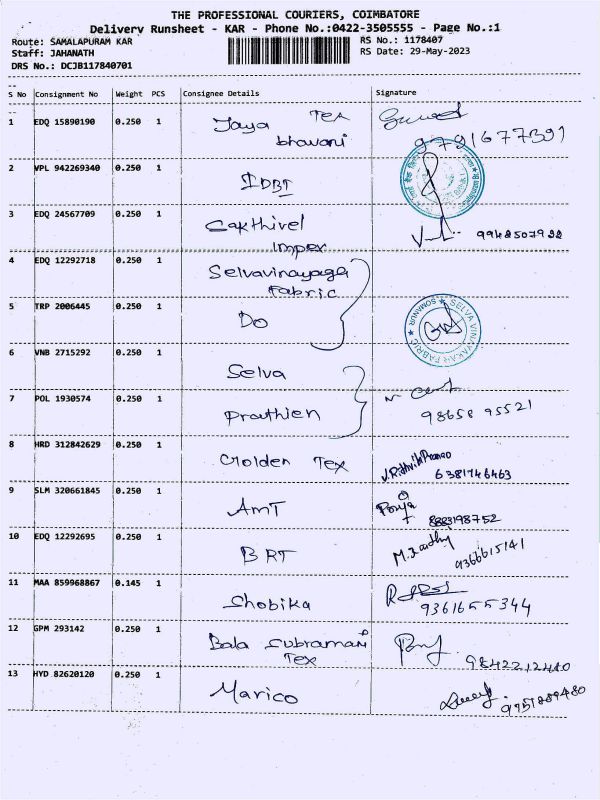 THE PROFESSIONAL COURIERS, COIMBATORE
Delivery Runsheet - KAR - Phone No.:0422-3505555 - Page No.:1
Route: SAMALAPURAM KAR RS No.: 1178407
Staff: JAHANATH RS Date: 29-May-2023
DRS No.: DCJB117840701
S No Consignment No Weight PCS Consignee Details Signature
1 EDQ 15890190 0.250 1 Jaya Tex
bhavani 9791677391
2 VPL 942269340 0.250 1 IDBI
3 EDQ 24567709 0.250 1 Cakthivel
Impex 9948507988
4 EDQ 12292718 0.250 1 Selvavinayaga
Fabric
5 TRP 2006445 0.250 1 Do
SELVA VINAYAKAR FABRIC ★ SOMANUR ★
6 VNB 2715292 0.250 1 Selva
7 POL 1930574 0.250 1 Prauthien 98658 95521
8 HRD 312842629 0.250 1 Golden Tex 6381746463
9 SLM 320661845 0.250 1 AMT Pooja
8883198752
10 EDQ 12292695 0.250 1 BRT M.Karthy
9366615141
11 MAA 859968867 0.145 1 Shobika
9361655344
12 GPM 293142 0.250 1 Bala Subramani
Tex 9842212440
13 HYD 82620120 0.250 1 Marico
9751889480